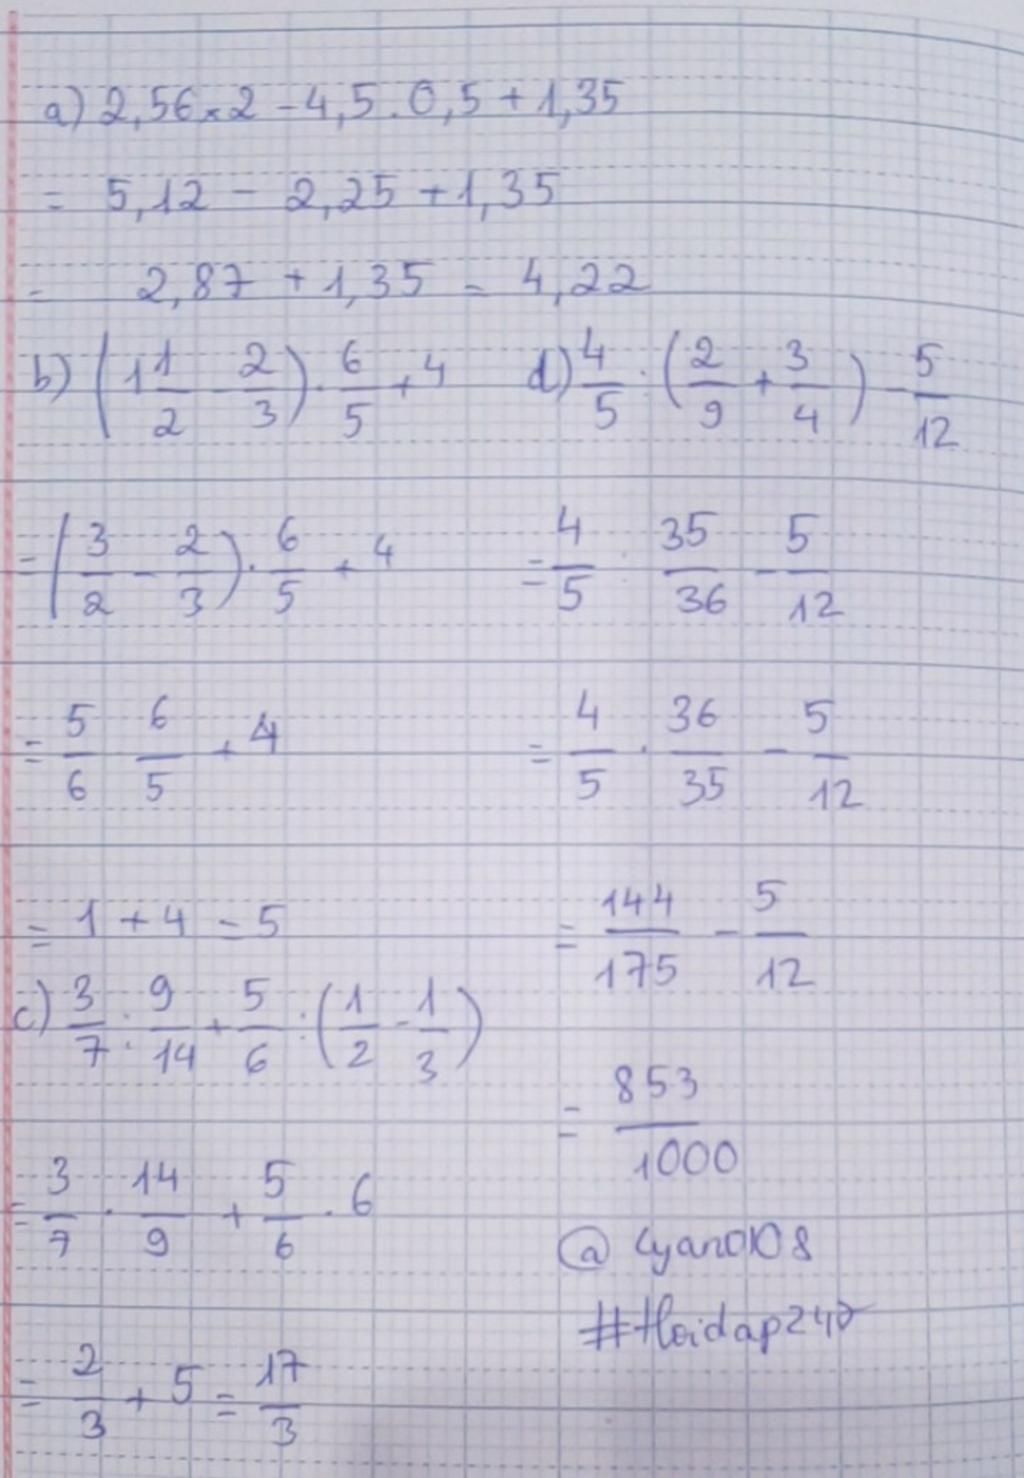 a) 2,56 x 2 - 4,5 . 0,5 + 1,35
= 5,12 - 2,25 + 1,35
= 2,87 + 1,35 = 4,22
b) (1 1/2 - 2/3) . 6/5 + 4
= (3/2 - 2/3) . 6/5 + 4
= 5/6 . 6/5 + 4
= 1 + 4 = 5
c) 3/7 : 9/14 + 5/6 : (1/2 - 1/3)
= 3/7 . 14/9 + 5/6 . 6
= 2/3 + 5 = 17/3
d) 4/5 : (2/9 + 3/4) - 5/12
= 4/5 : 35/36 - 5/12
= 4/5 . 36/35 - 5/12
= 144/175 - 5/12
= 853/1000
@ Cyan0108
#Hoidap247